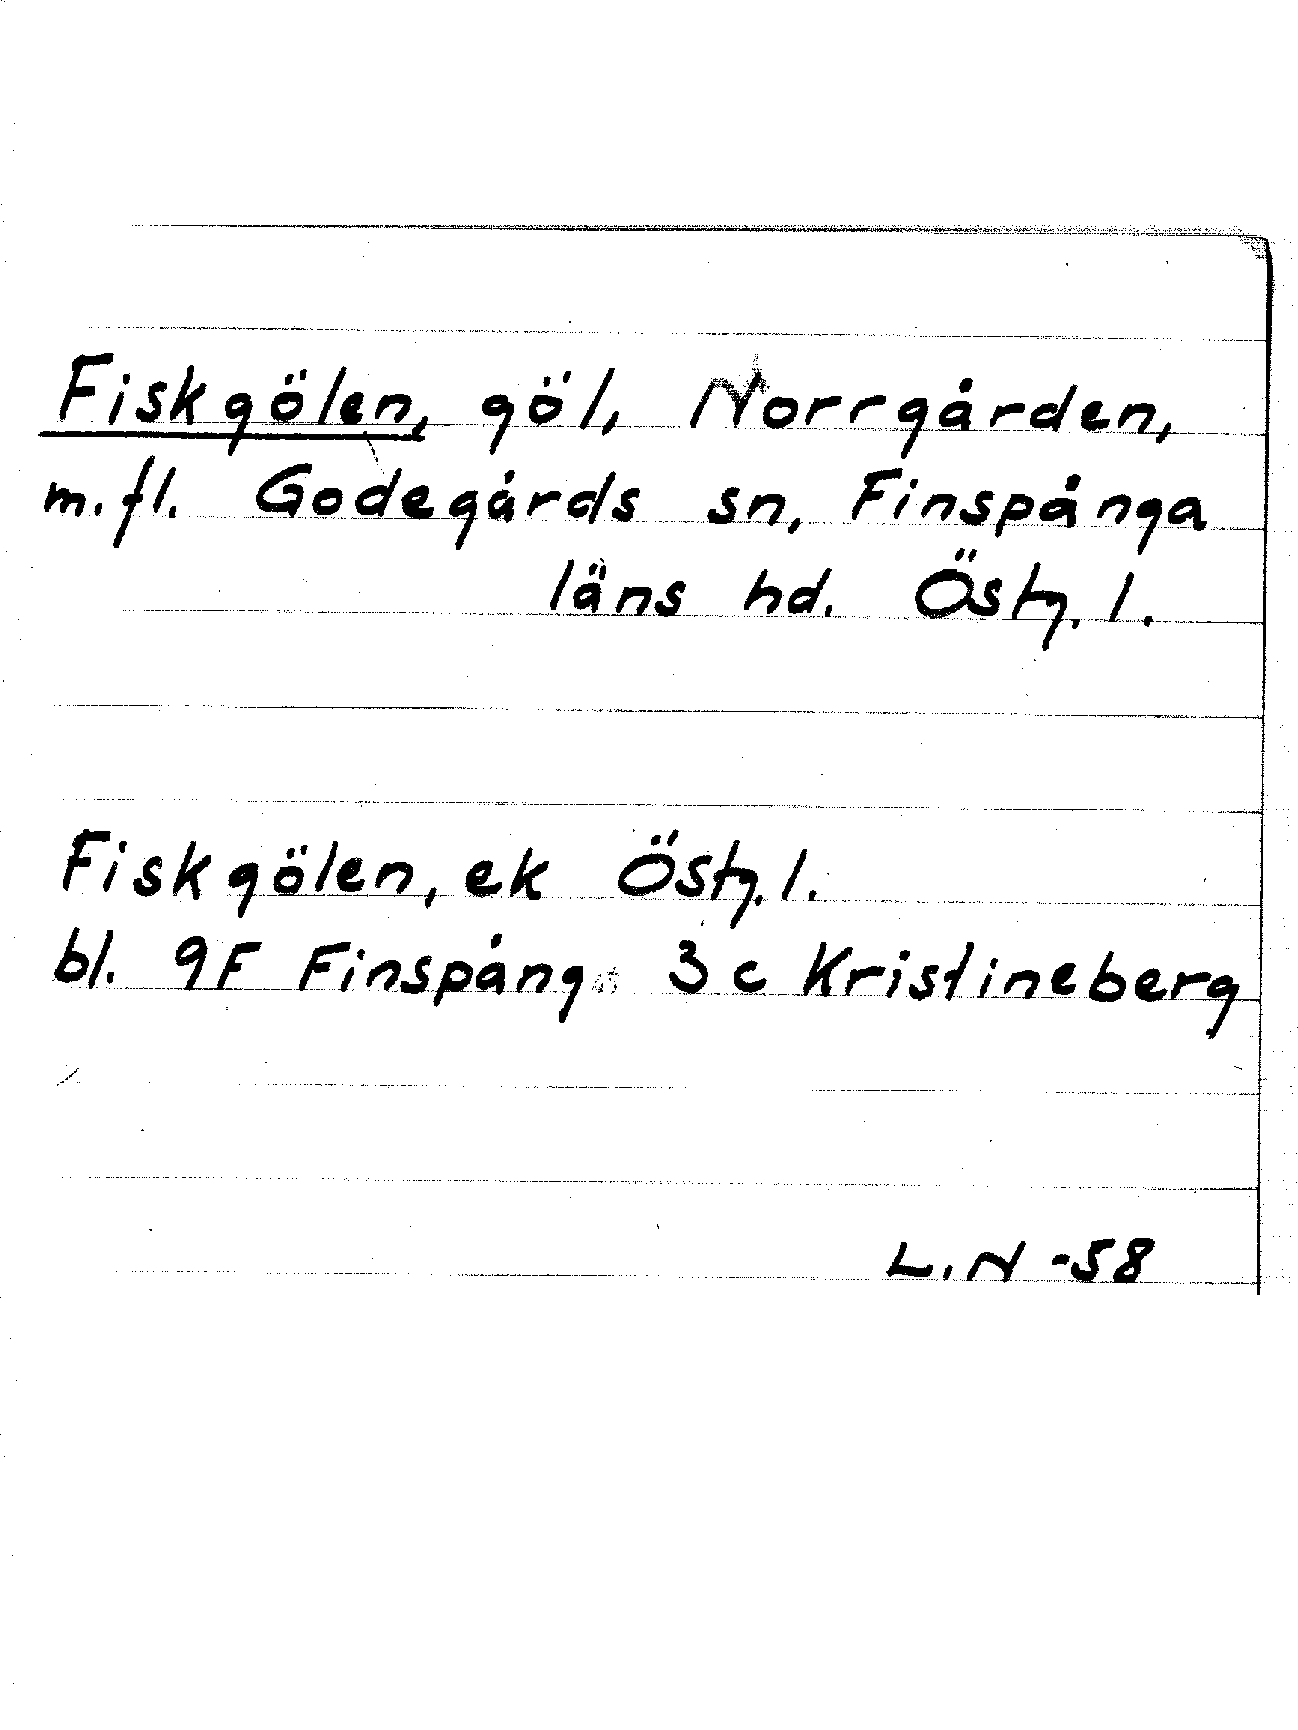 Fiskgölen, göl, Norrgården,
m.fl. Godegårds sn, Finspånga
läns hd. Östg. l.
Fiskgölen, ek Östg. l.
bl. 9F Finspång 3c Kristineberg
L.N -58